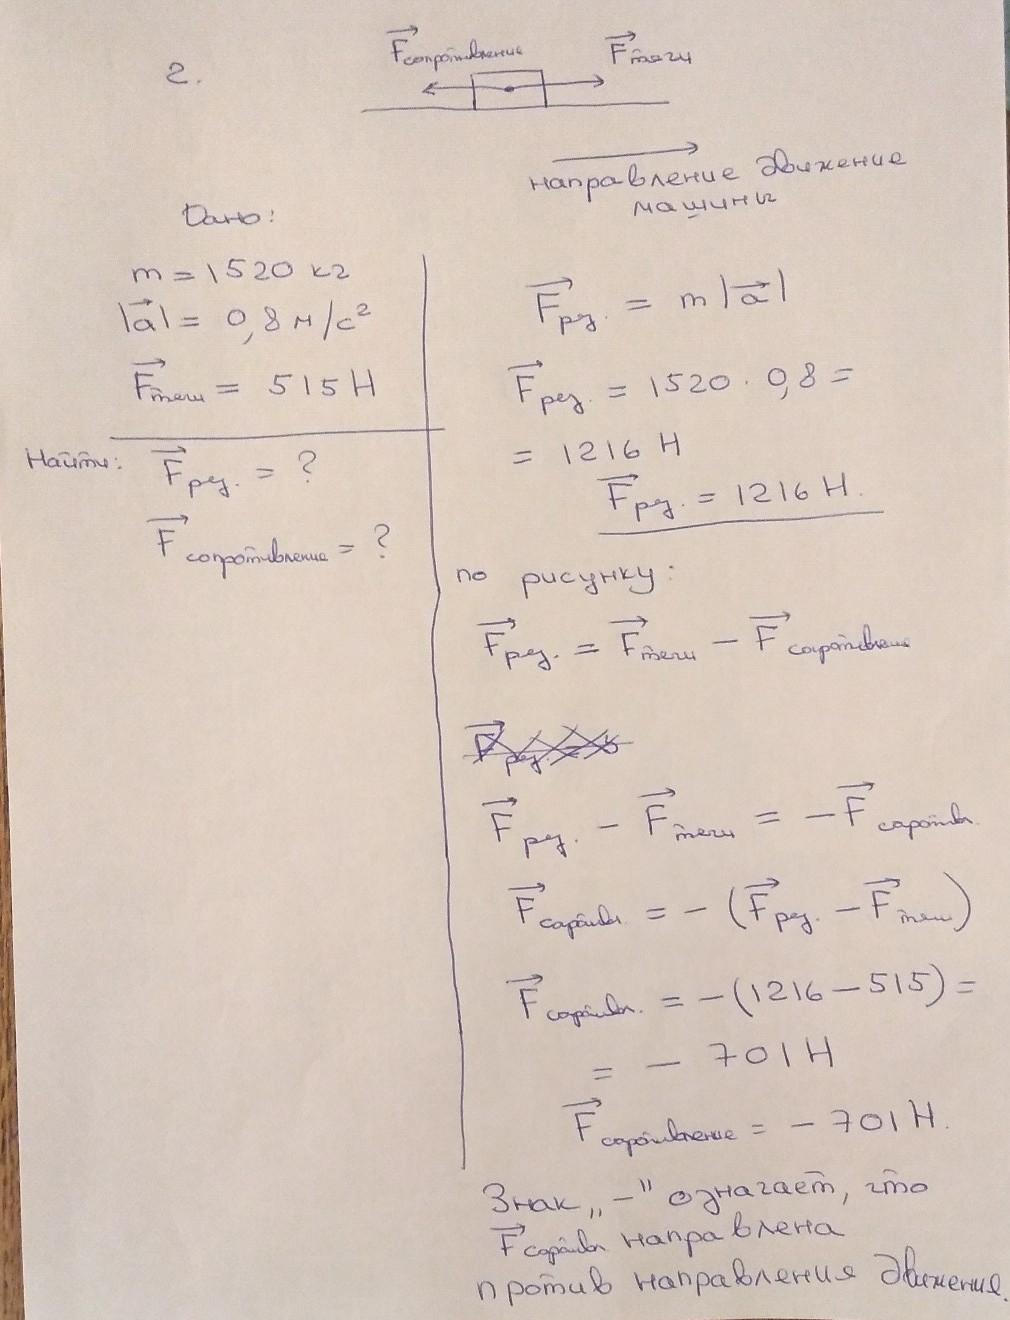 2.
F сопротивление
F тяги
направление движение
машины
Дано:
m = 1520 кг
|a| = 0,8 м/с²
F тяги = 515 Н
Найти: F рез. = ?
F сопротивление = ?
F рез. = m |a|
F рез. = 1520 · 0,8 =
= 1216 Н
F рез. = 1216 Н.
по рисунку:
F рез. = F тяги − F сопротивление
F рез. − F тяги = − F сопротивл.
F сопротивл. = − (F рез. − F тяги)
F сопротивл. = − (1216 − 515) =
= − 701 Н
F сопротивление = − 701 Н.
Знак „−" означает, что
F сопротивл направлена
против направления движения.